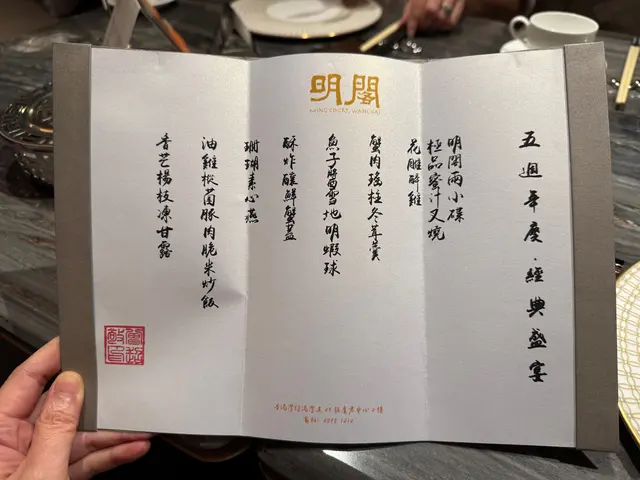 明閣
MING COURT, WANCHAI
五週年度·經典盛宴
明閣兩小碟
極品蜜汁叉燒
花雕醉雞
蟹肉瑤柱冬茸羹
魚子醬雪地明蝦球
酥炸釀鮮蟹蓋
珊瑚素心燕
油雞樅菌豚肉脆米炒飯
香芒楊枝凍甘露
香港灣仔港灣道